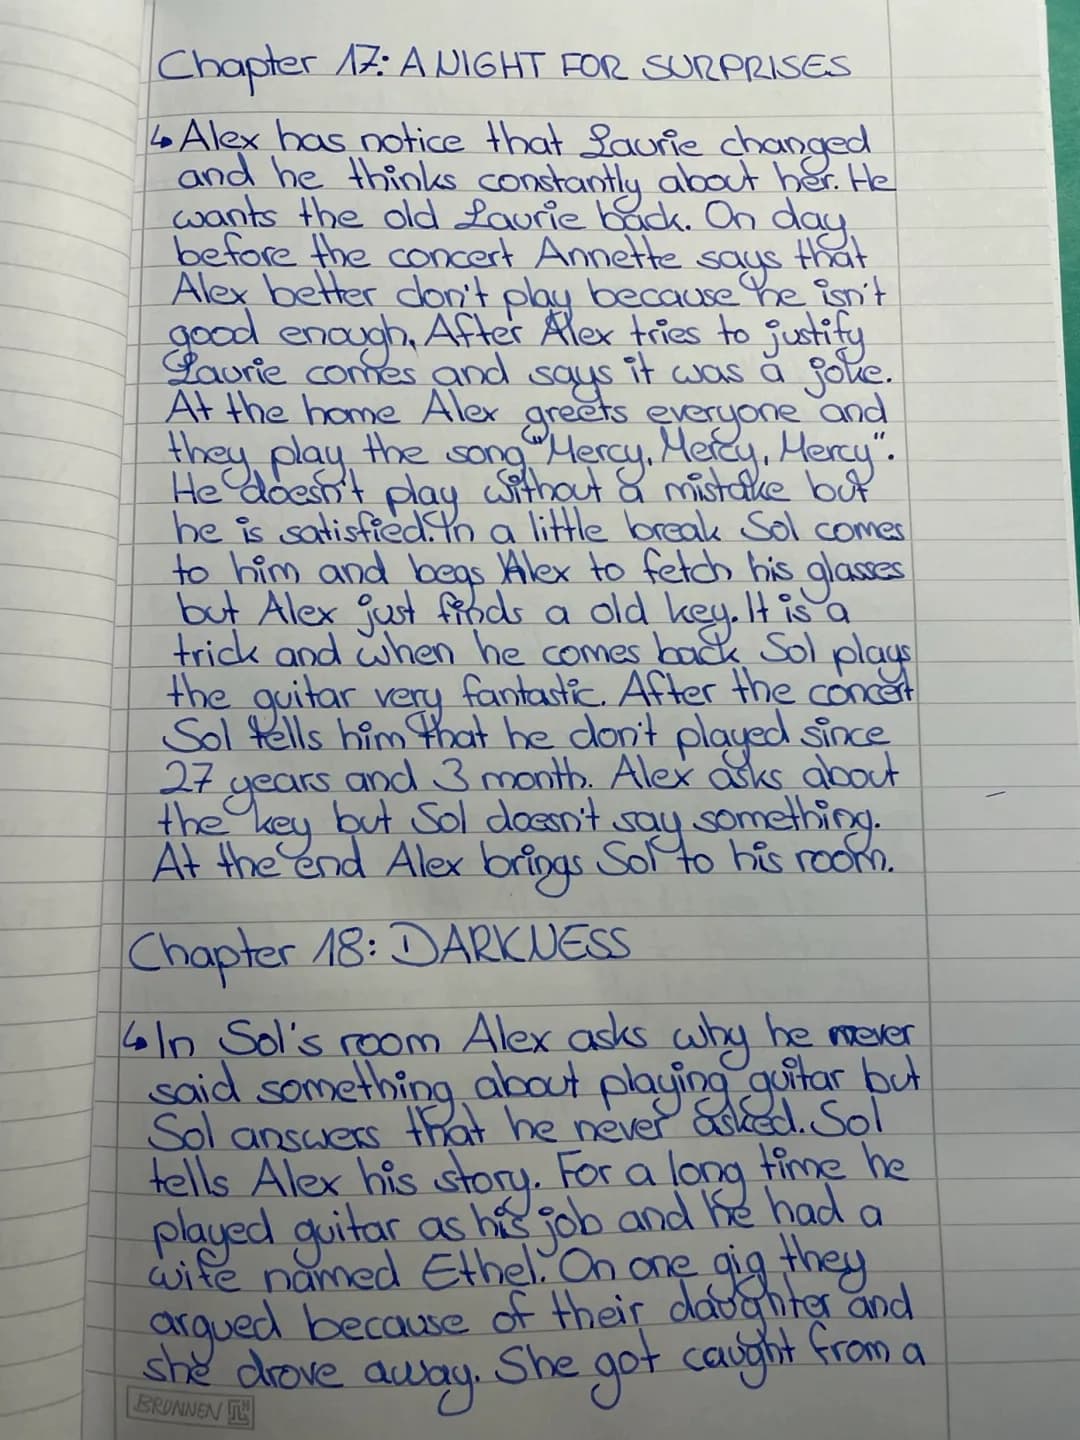 Chapter 17: A NIGHT FOR SURPRISES
↳ Alex has notice that Laurie changed
and he thinks constantly about her. He
wants the old Laurie back. On day
before the concert Annette says that
Alex better don't play because he isn't
good enough. After Alex tries to justify
Laurie comes and says it was a joke.
At the home Alex greets everyone and
they play the song "Mercy, Mercy, Mercy".
He doesn't play without a mistake but
he is satisfied. In a little break Sol comes
to him and begs Alex to fetch his glasses
but Alex just finds a old key. It is a
trick and when he comes back Sol plays
the guitar very fantastic. After the concert
Sol tells him that he don't played since
27 years and 3 month. Alex asks about
the key but Sol doesn't say something.
At the end Alex brings Sol to his room.
Chapter 18: DARKNESS
↳ In Sol's room Alex asks why he never
said something about playing guitar but
Sol answers that he never asked. Sol
tells Alex his story. For a long time he
played guitar as his job and he had a
wife named Ethel. On one gig they
argued because of their daughter and
she drove away. She got caught from a
BRUNNEN